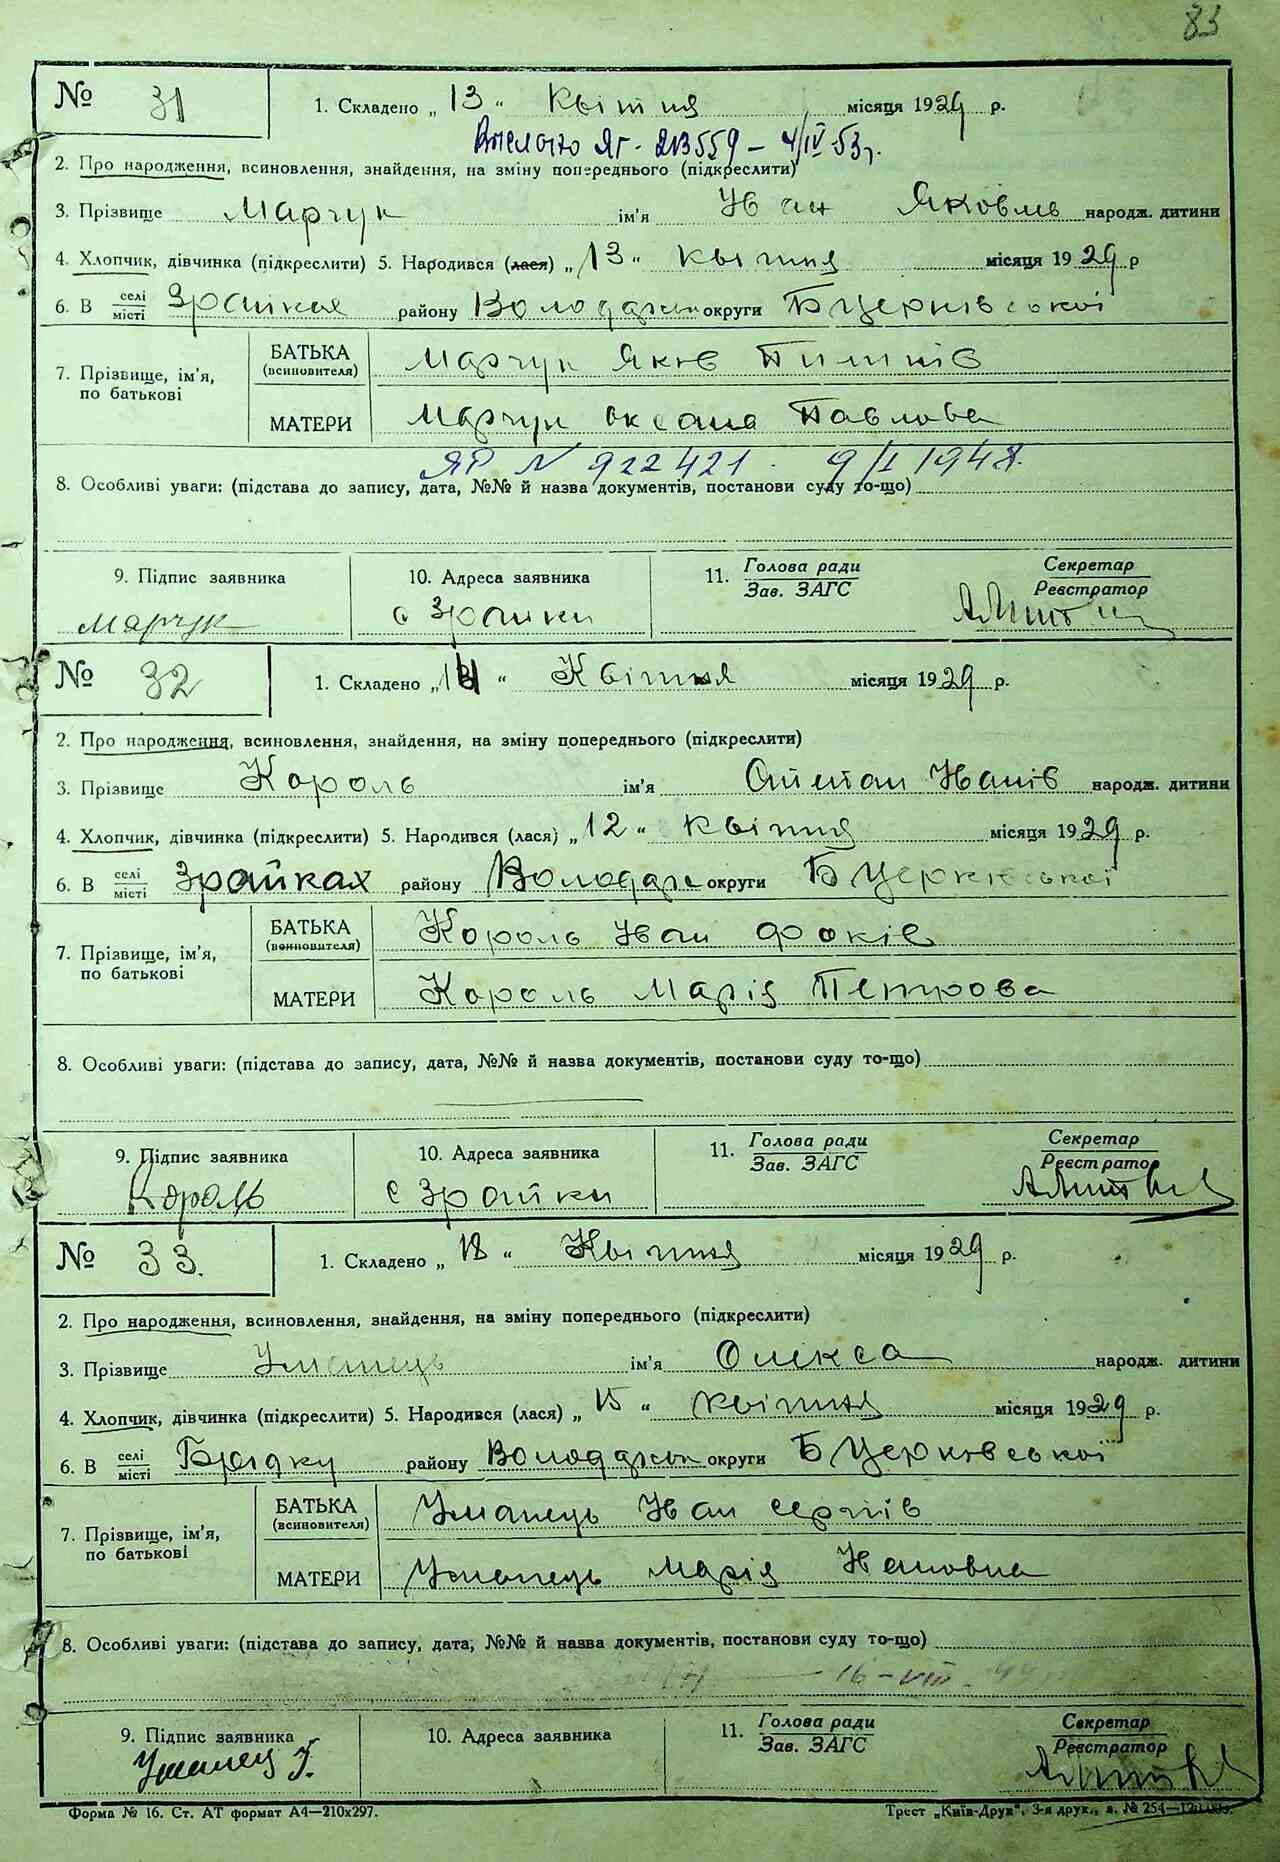 83
№ 31 1. Складено „13“ Квітня місяця 1929 р.
Вислано ЯГ- 213559 – 4/IV-53г.
2. Про народження, всиновлення, знайдення, на зміну попереднього (підкреслити)
3. Прізвище Марчук ім'я Иван Яковль народж. дитини
4. Хлопчик, дівчинка (підкреслити) 5. Народився (лася) „13“ квітня місяця 1929 р
6. В селі місті Зрайках району Володарськ округи БЦерківської
7. Прізвище, ім'я, по батькові
БАТЬКА (всиновителя) Марчук Яків Пилипів
МАТЕРИ Марчук Оксана Павлова
ЯР N 922421. 9/I 1948.
8. Особливі уваги: (підстава до запису, дата, №№ й назва документів, постанови суду то-що)
9. Підпис заявника 10. Адреса заявника 11. Голова ради Зав. ЗАГС Секретар Реєстратор
Марчук с Зрайки
№ 32 1. Складено „14“ Квітня місяця 1929 р.
2. Про народження, всиновлення, знайдення, на зміну попереднього (підкреслити)
3. Прізвище Король ім'я Иванів народж. дитини
4. Хлопчик, дівчинка (підкреслити) 5. Народився (лася) „12“ квітня місяця 1929 р.
6. В селі місті Зрайках району Володарс округи БЦерківської
7. Прізвище, ім'я, по батькові
БАТЬКА (всиновителя) Король Иван Фоків
МАТЕРИ Король Марія Петрова
8. Особливі уваги: (підстава до запису, дата, №№ й назва документів, постанови суду то-що)
9. Підпис заявника 10. Адреса заявника 11. Голова ради Зав. ЗАГС Секретар Реєстратор
Король с Зрайки
№ 33. 1. Складено „18“ Квітня місяця 1929 р.
2. Про народження, всиновлення, знайдення, на зміну попереднього (підкреслити)
3. Прізвище Уманець ім'я Олекса народж. дитини
4. Хлопчик, дівчинка (підкреслити) 5. Народився (лася) „15“ квітня місяця 1929 р.
6. В селі місті району Володарськ округи БЦерковської
7. Прізвище, ім'я, по батькові
БАТЬКА (всиновителя) Уманець Иван Сергіів
МАТЕРИ Уманець Марія Ивановна
8. Особливі уваги: (підстава до запису, дата, №№ й назва документів, постанови суду то-що)
16-VIII-
9. Підпис заявника 10. Адреса заявника 11. Голова ради Зав. ЗАГС Секретар Реєстратор
Уманец І.
Форма № 16. Ст. АТ формат А4—210х297. Трест „Київ-Друк“, 3-я друк., з. № 254—